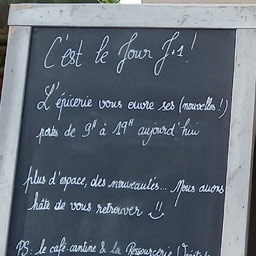 C'est le Jour J.1!
L'épicerie vous ouvre ses (nouvelles!)
portes de 9H à 19H aujourd'hui
plus d'espace, des nouveautés... Nous avons
hâte de vous retrouver !!
PS: le café-cantine & la Ressourcerie